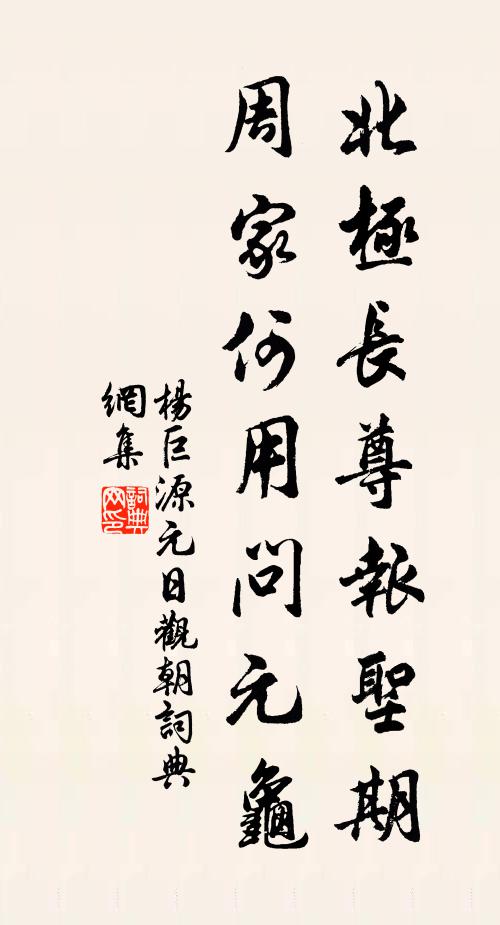 北極長尊報聖期
周家何用問元龜
楊巨源元日觀朝詞典
網集
詞典
网印